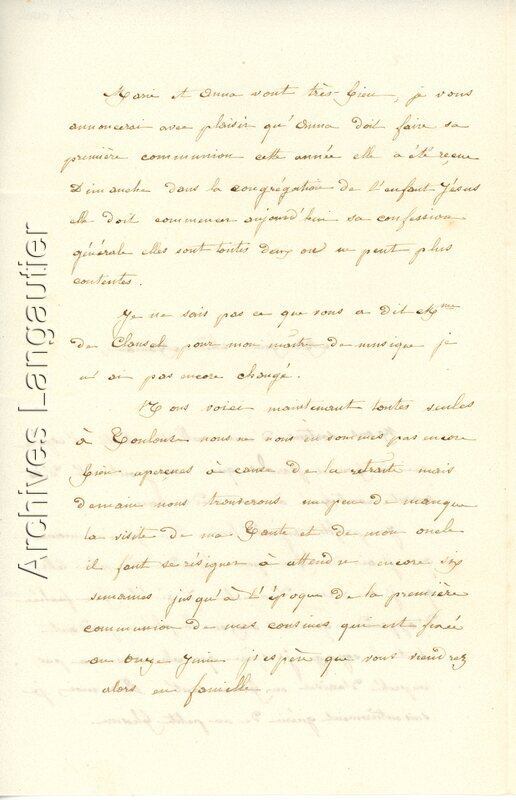 Marie et Anna vont très bien, je vous
annoncerai avec plaisir qu'Anna doit faire sa
première communion cette année elle a été reçue
Dimanche dans la congrégation de l'enfant Jésus
elle doit commencer aujourd'hui sa confession
générale elles sont toutes deux on ne peut plus
contentes.
Je ne sais pas ce que vous a dit Mme
de Clausel pour mon maître de musique je
n'ai pas encore changé.
Nous voici maintenant toutes seules
à Toulouse nous ne nous en sommes pas encore
bien aperçues à cause de la retraite mais
demain nous trouverons un peu de manque
la visite de ma Tante et de mon oncle
il faut se résigner à attendre encore six
semaines jusqu'à l'époque de la première
communion de mes cousines qui est fixée
au onze Juin j'espère que vous viendrez
alors en famille
Archives Langautier